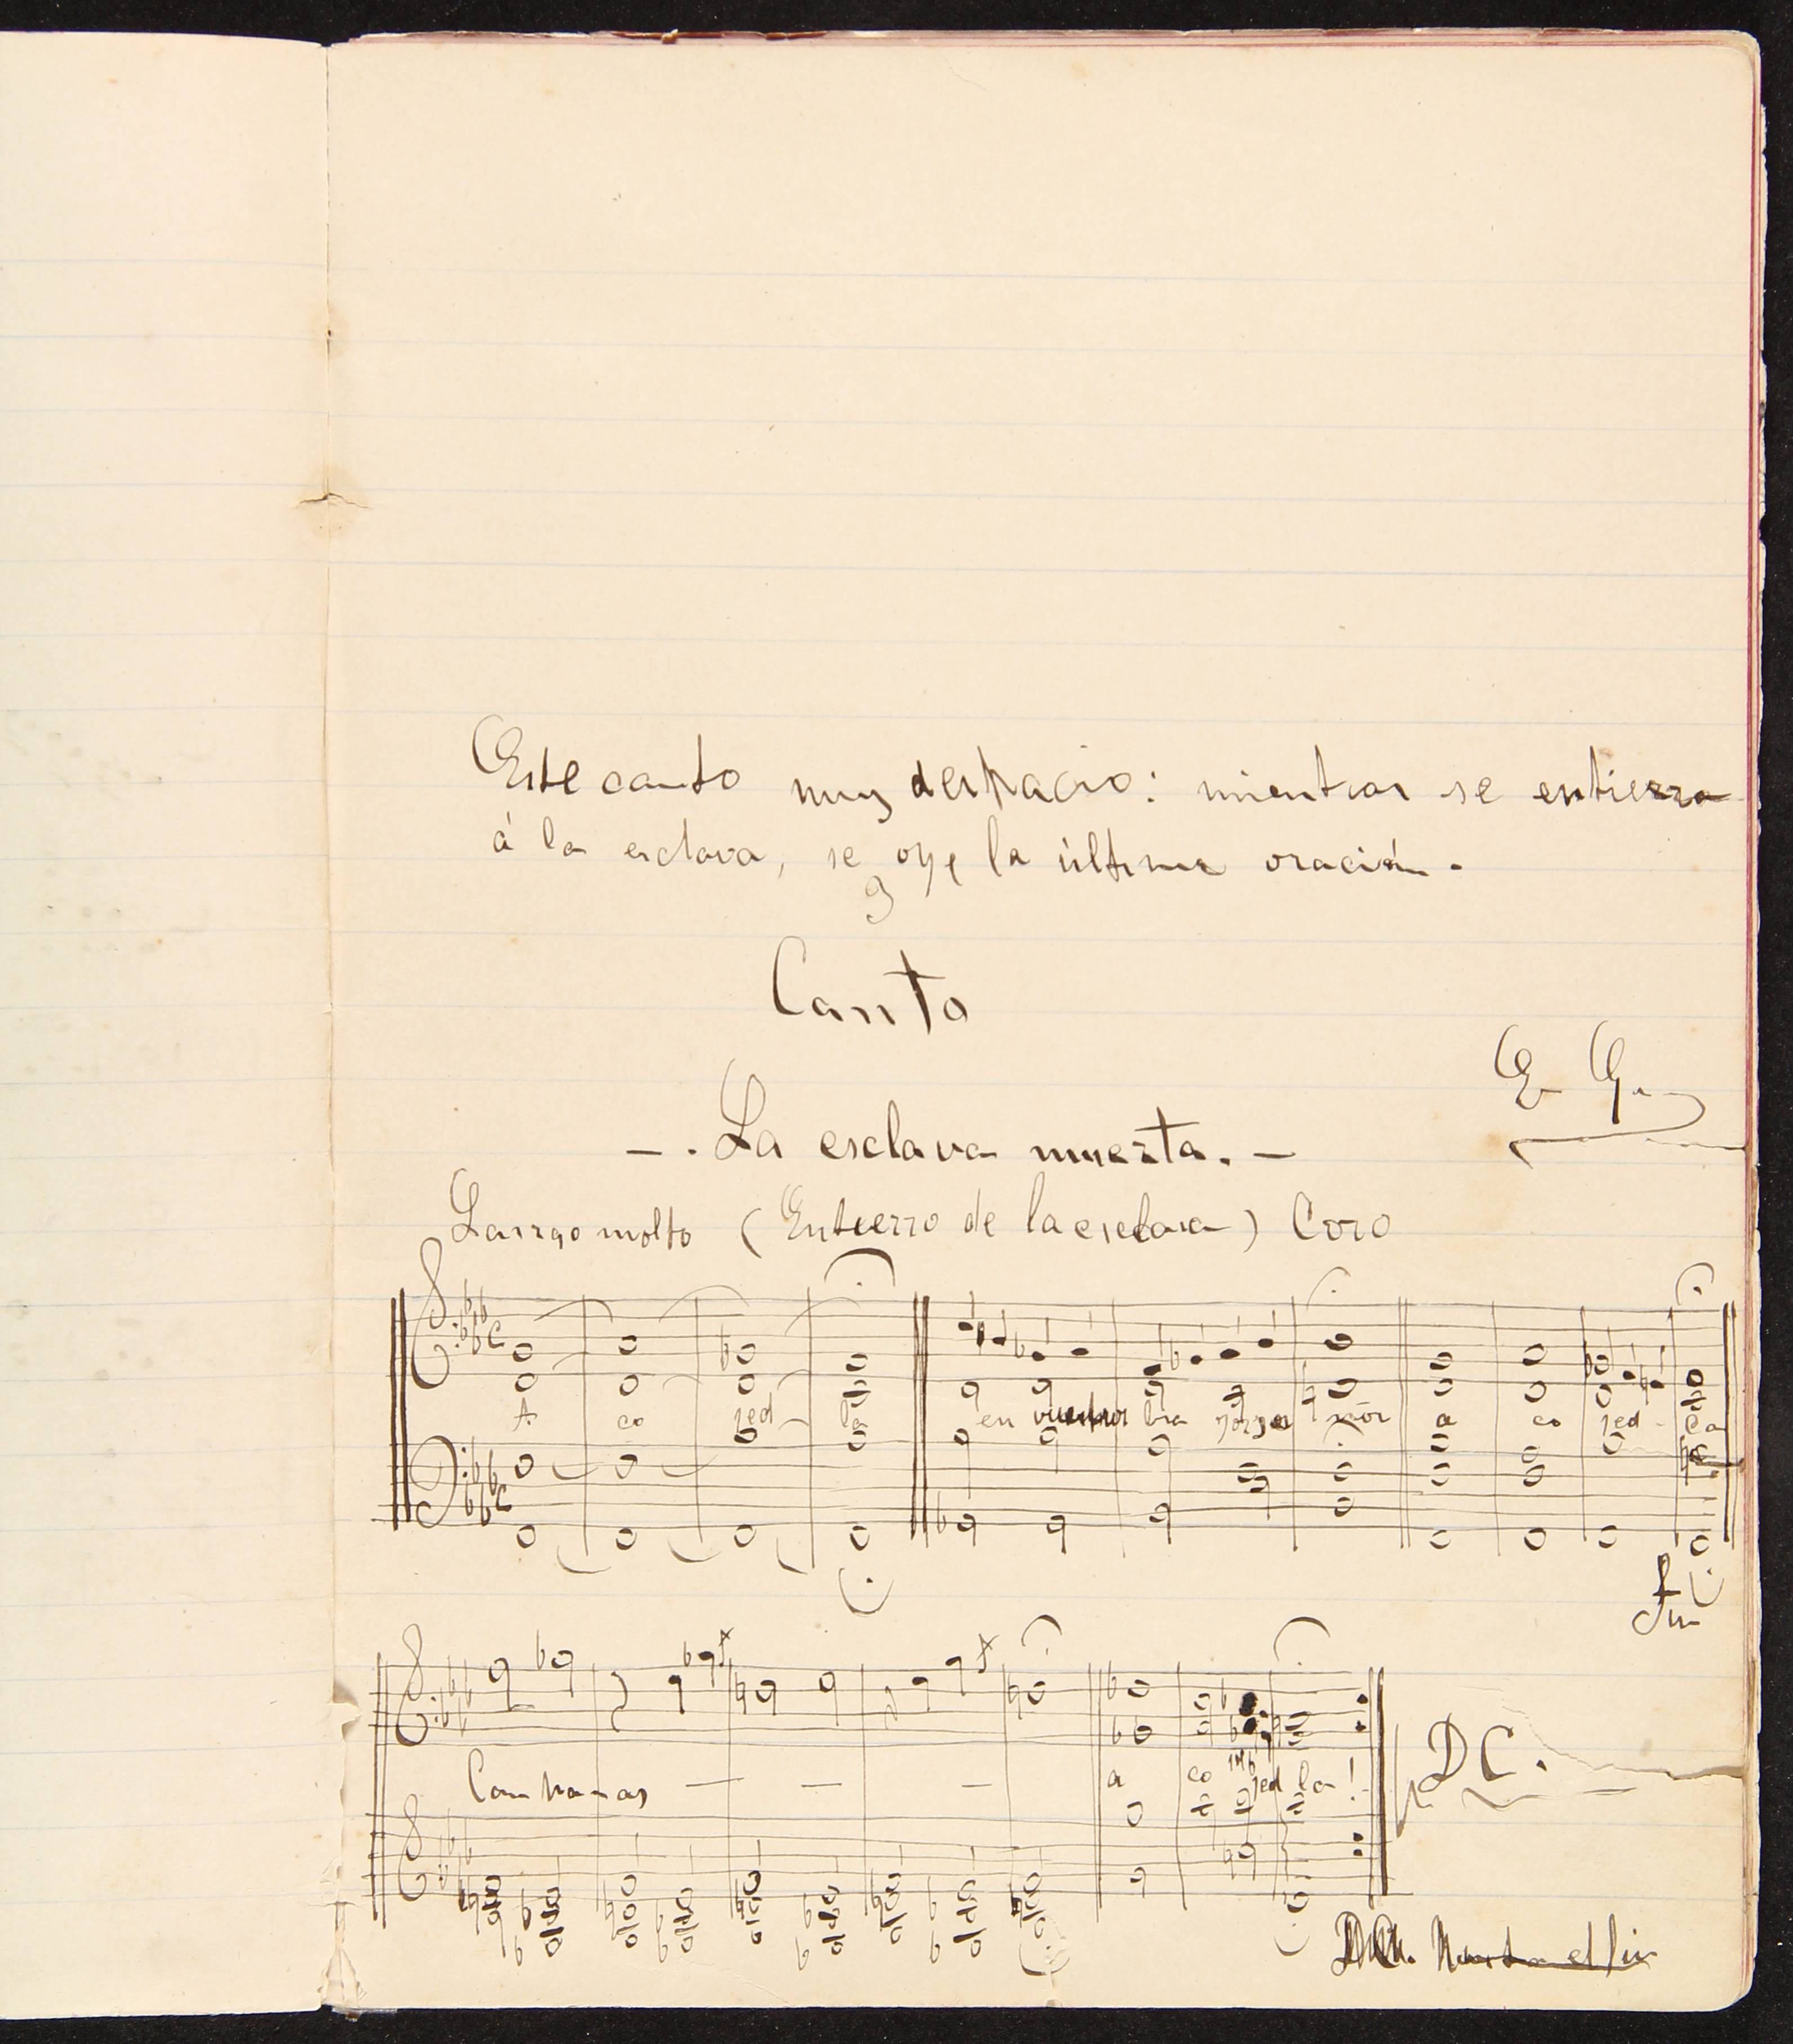 Este canto muy despacio: mientras se entierra
á la esclava, se oye la última oración.
Canto
E G.
—. La esclava muerta. —
Largo molto (Entierro de la esclava) Coro
A co jed la en bra a co jed la
Fin
Campanas — — — a co jed la!
DC.